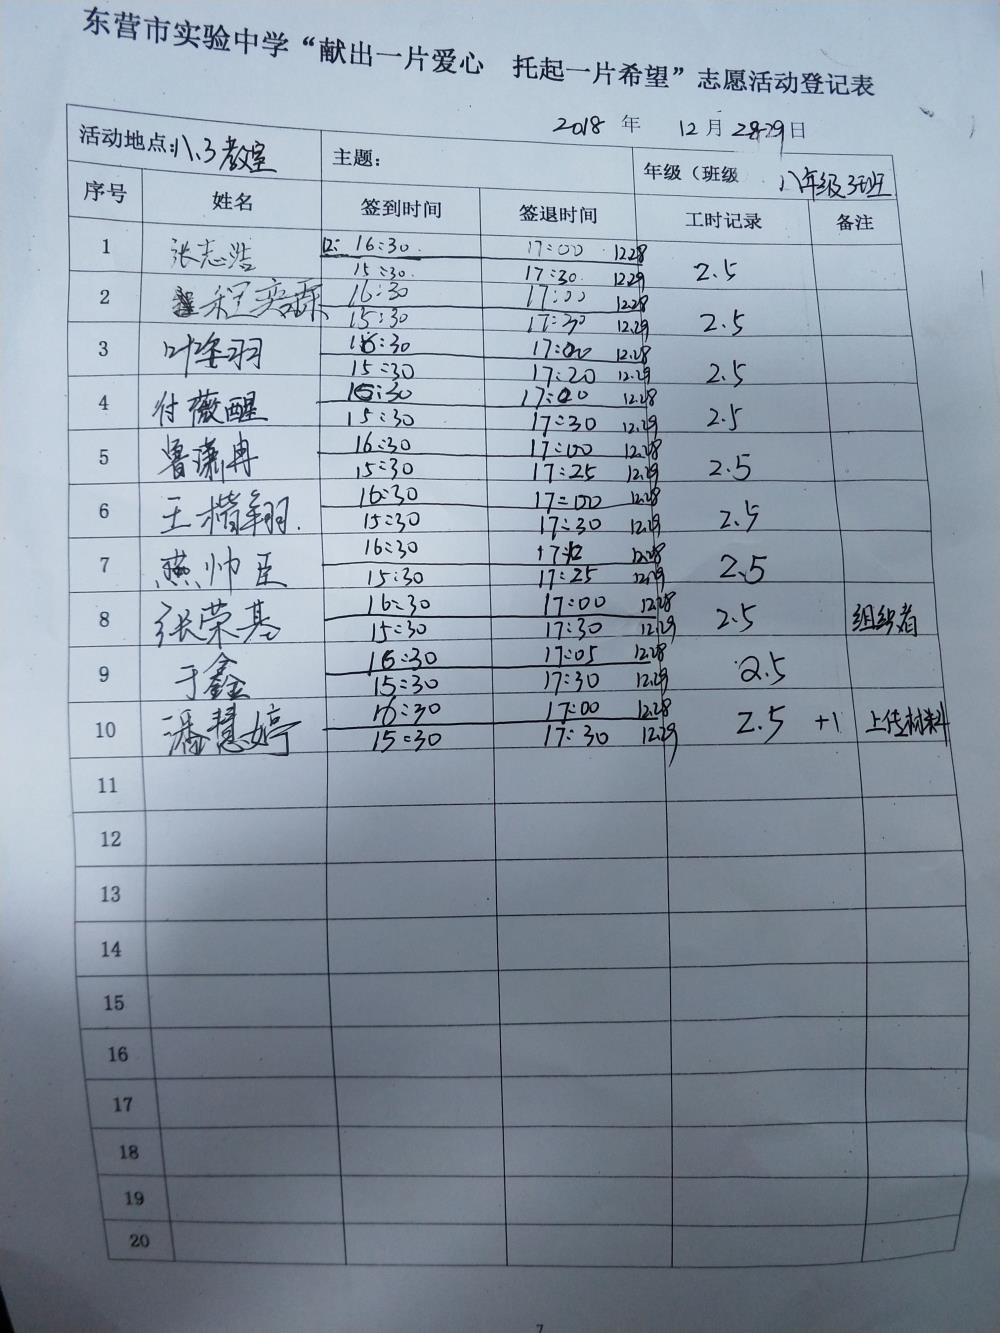 东营市实验中学“献出一片爱心 托起一片希望”志愿活动登记表
2018 年 12 月 28-29 日
活动地点:八.3教室 主题: 年级（班级 八年级3班
序号 姓名 签到时间 签退时间 工时记录 备注
1 张志浩 16:30 17:00 12.28 2.5
15:30 17:30 12.29
2 程奕霖 16:30 17:00 12.28 2.5
15:30 17:30 12.29
3 16:30 17:00 12.28 2.5
15:30 17:20 12.29
4 付薇醒 16:30 17:00 12.28 2.5
15:30 17:30 12.29
5 鲁潇冉 16:30 17:00 12.28 2.5
15:30 17:25 12.29
6 王楷翔 16:30 17:00 12.28 2.5
15:30 17:30 12.29
7 燕帅臣 16:30 12.28 2.5
15:30 17:25 12.29
8 张荣基 16:30 17:00 12.28 2.5 组织者
15:30 17:30 12.29
9 于鑫 16:30 17:05 12.28 2.5
15:30 17:30 12.29
10 潘慧婷 16:30 17:00 12.28 2.5 +1 上传材料
15:30 17:30 12.29
11
12
13
14
15
16
17
18
19
20
7